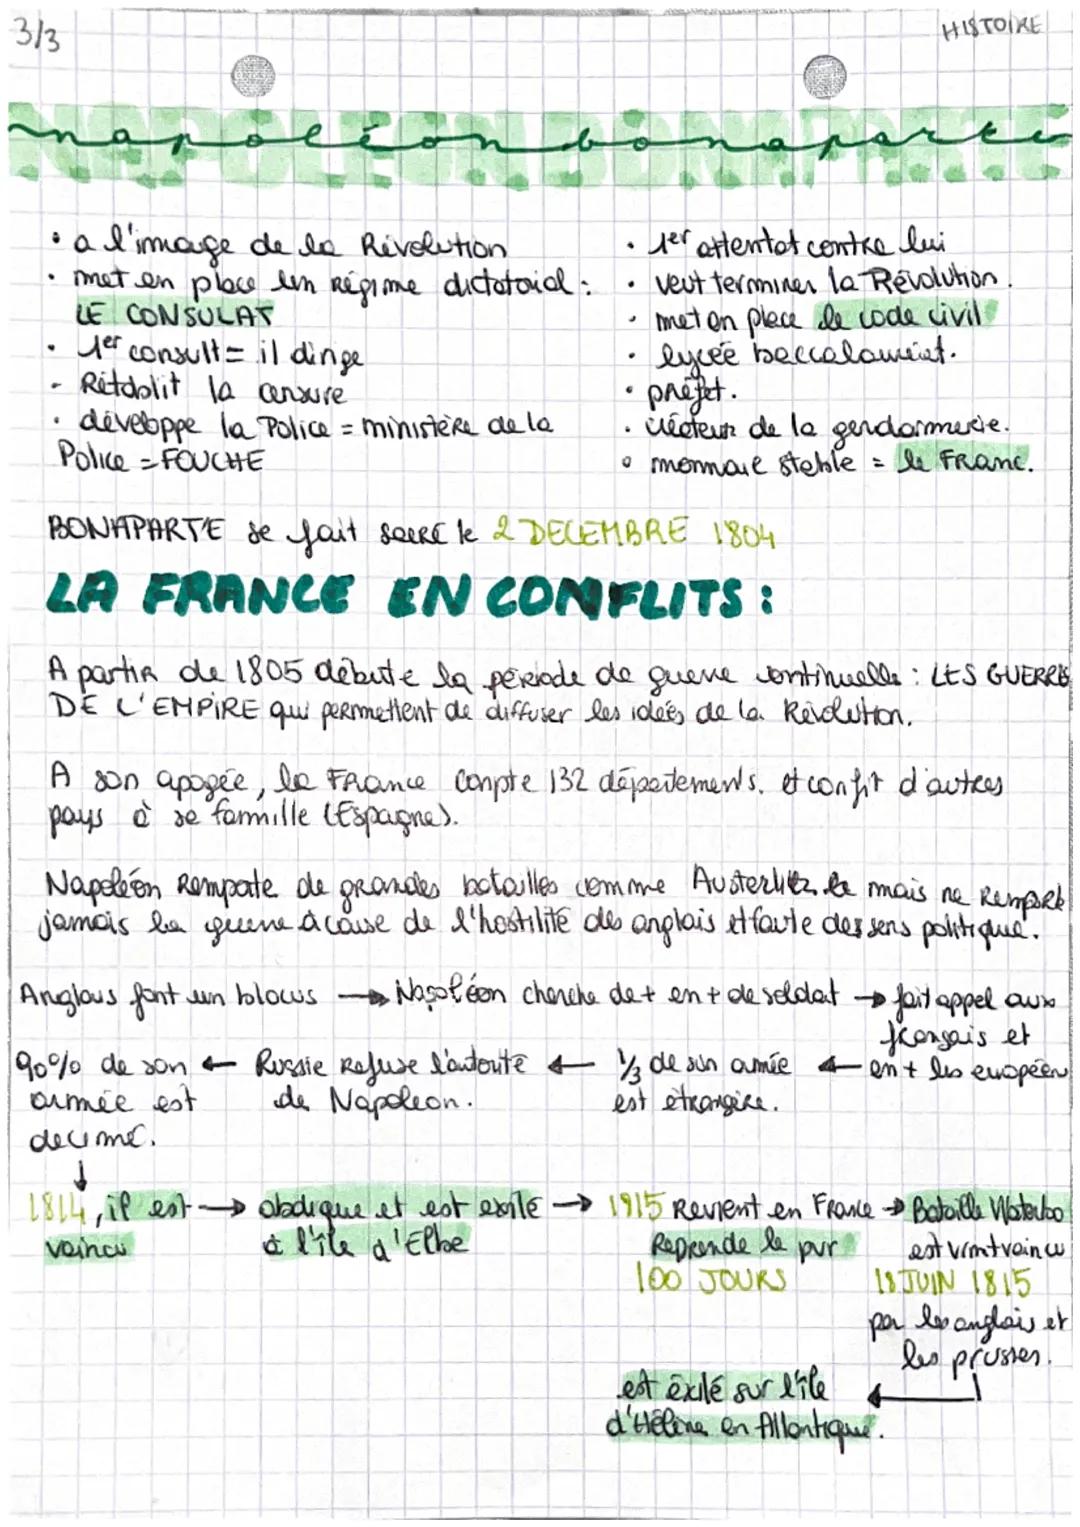 3/3
HISTOIRE
napoléon bonaparte
• a l'image de la Révolution
• met en place un régime dictatorial :
LE CONSULAT
• 1er consult = il dirige
- Rétablit la censure
• développe la Police = ministère de la
Police = FOUCHE
• 1er attentat contre lui
• veut terminer la Révolution.
• met en place le code civil
• lycée baccalauréat.
• préfet.
• créateur de la gendarmerie.
• monnaie stable = le FRANC.
BONAPARTE se fait sacré le 2 DECEMBRE 1804
LA FRANCE EN CONFLITS :
A partir de 1805 débute la période de guerre continuelle : LES GUERRES
DE L'EMPIRE qui permettent de diffuser les idées de la Révolution.
A son apogée, la France compte 132 départements. et confit d'autres
pays à sa fammille (Espagne).
Napoléon remporte de grandes batailles comme Austerlitz mais ne remporte
jamais la guerre à cause de l'hostilité des anglais et faute des sens politique.
Anglais font un blocus → Napoléon cherche de + en + de soldat → fait appel aux
français et
en + les européen
← 1/3 de son armée
est étrangère.
← Russie refuse l'autorité
de Napoléon.
← 90% de son
armée est
decimé.
↓
1814, il est
vaincu
→ abdique et est exilé
à l'île d'Elbe
→ 1915 Revient en France
Reprende le pvr
100 JOURS
→ Bataille Waterloo
est vmt vaincu
18 JUIN 1815
par les anglais et
les prusses.
est éxilé sur l'île
d'Hélène en Atlantique.